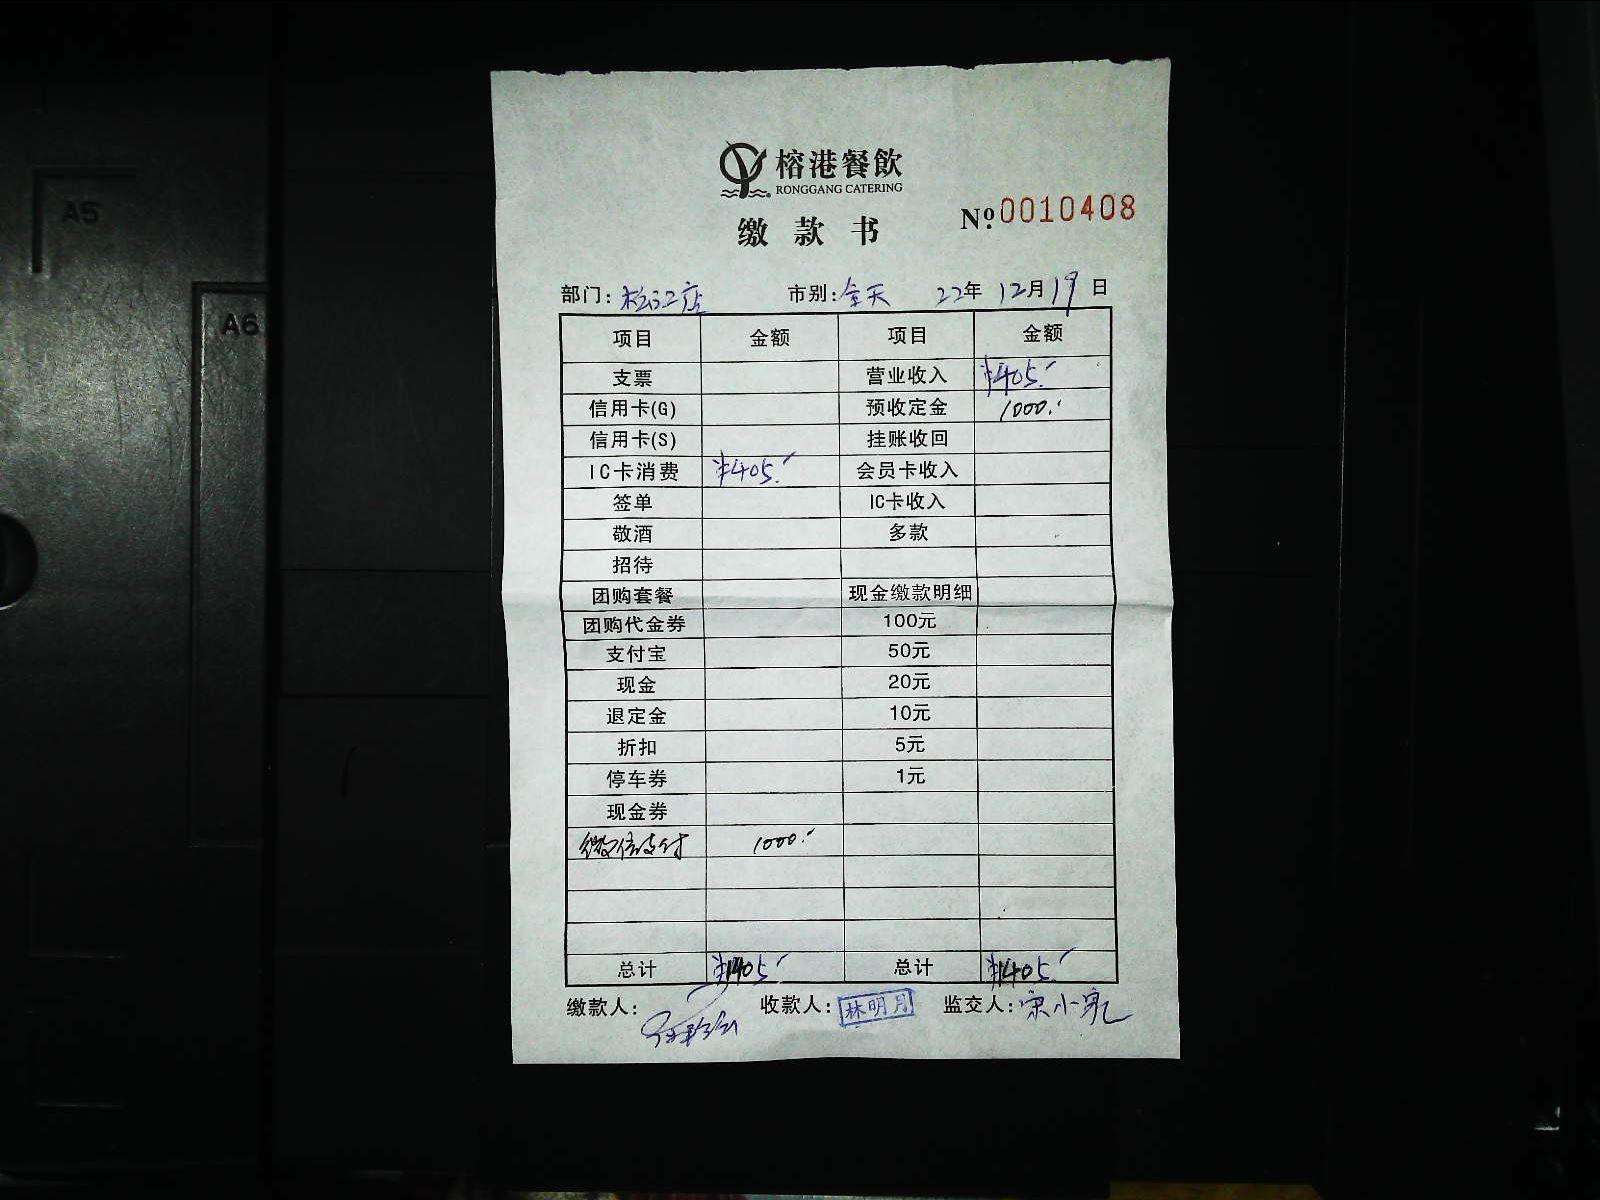 A5
A6
榕港餐飲
RONGGANG CATERING
缴款书
№ 0010408
部门: 松江店 市别: 全天 22年 12月 19日
项目 金额 项目 金额
支票 营业收入 ¥405.-
信用卡(G) 预收定金 1000.-
信用卡(S) 挂账收回
IC卡消费 ¥405.- 会员卡收入
签单 IC卡收入
敬酒 多款
招待
团购套餐 现金缴款明细
团购代金券 100元
支付宝 50元
现金 20元
退定金 10元
折扣 5元
停车券 1元
现金券
微信支付 1000.-
总计 ¥1405.- 总计 ¥1405.-
缴款人: 收款人: 林明月 监交人: 宋小